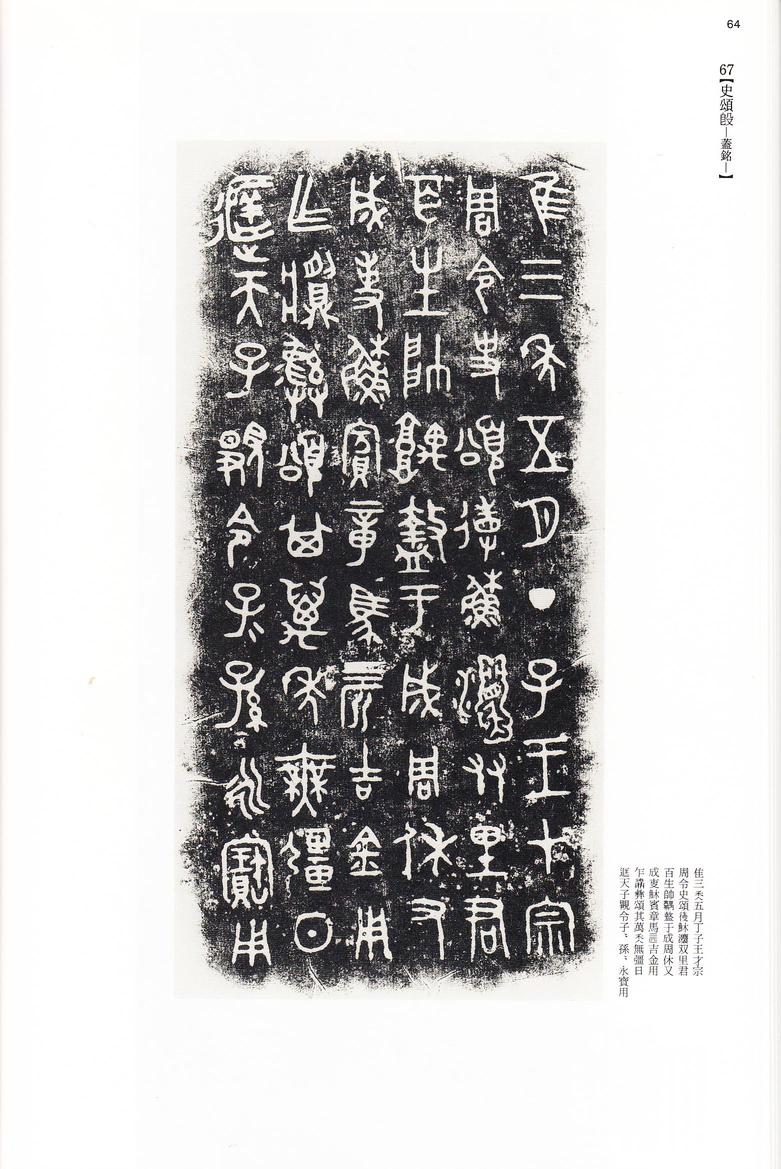 64
67【史頌𣪘—蓋銘—】
隹三年五月丁子王才宗
周令史頌𢓊穌灋友里君
百生帥𩜁盩于成周休又
成吏穌賓章馬三吉金用
乍𩰫彝頌其萬年無彊日
𨒌天子覭令子〻孫〻永寶用